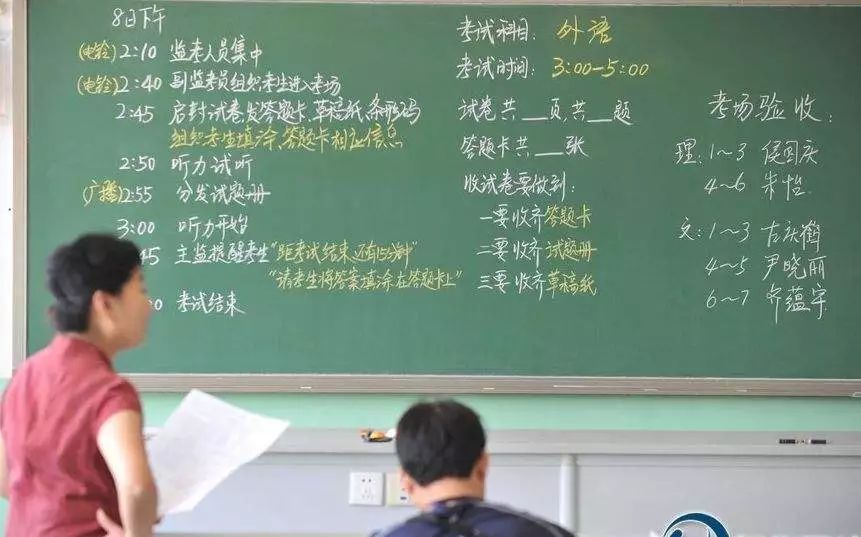 8日下午
(电铃) 2:10 监考人员集中
(电铃) 2:40 副监考员组织考生进入考场
2:45 启封试卷发答题卡、草稿纸、条形码
组织考生填涂、答题卡相应信息
2:50 听力试听
(广播) 2:55 分发试题册
3:00 听力开始
45 主监提醒考生“距考试结束还有15分钟”
“请考生将答案填涂在答题卡上”
0 考试结束
考试科目: 外语
考试时间: 3:00-5:00
试卷共__页,共__题
答题卡共__张
收试卷要做到:
一要收齐答题卡
二要收齐试题册
三要收齐草稿纸
考场验收:
理:1~3 侯国庆
4~6 朱怡
文:1~3 左庆
4~5 尹晓丽
6~7 齐蕴宇